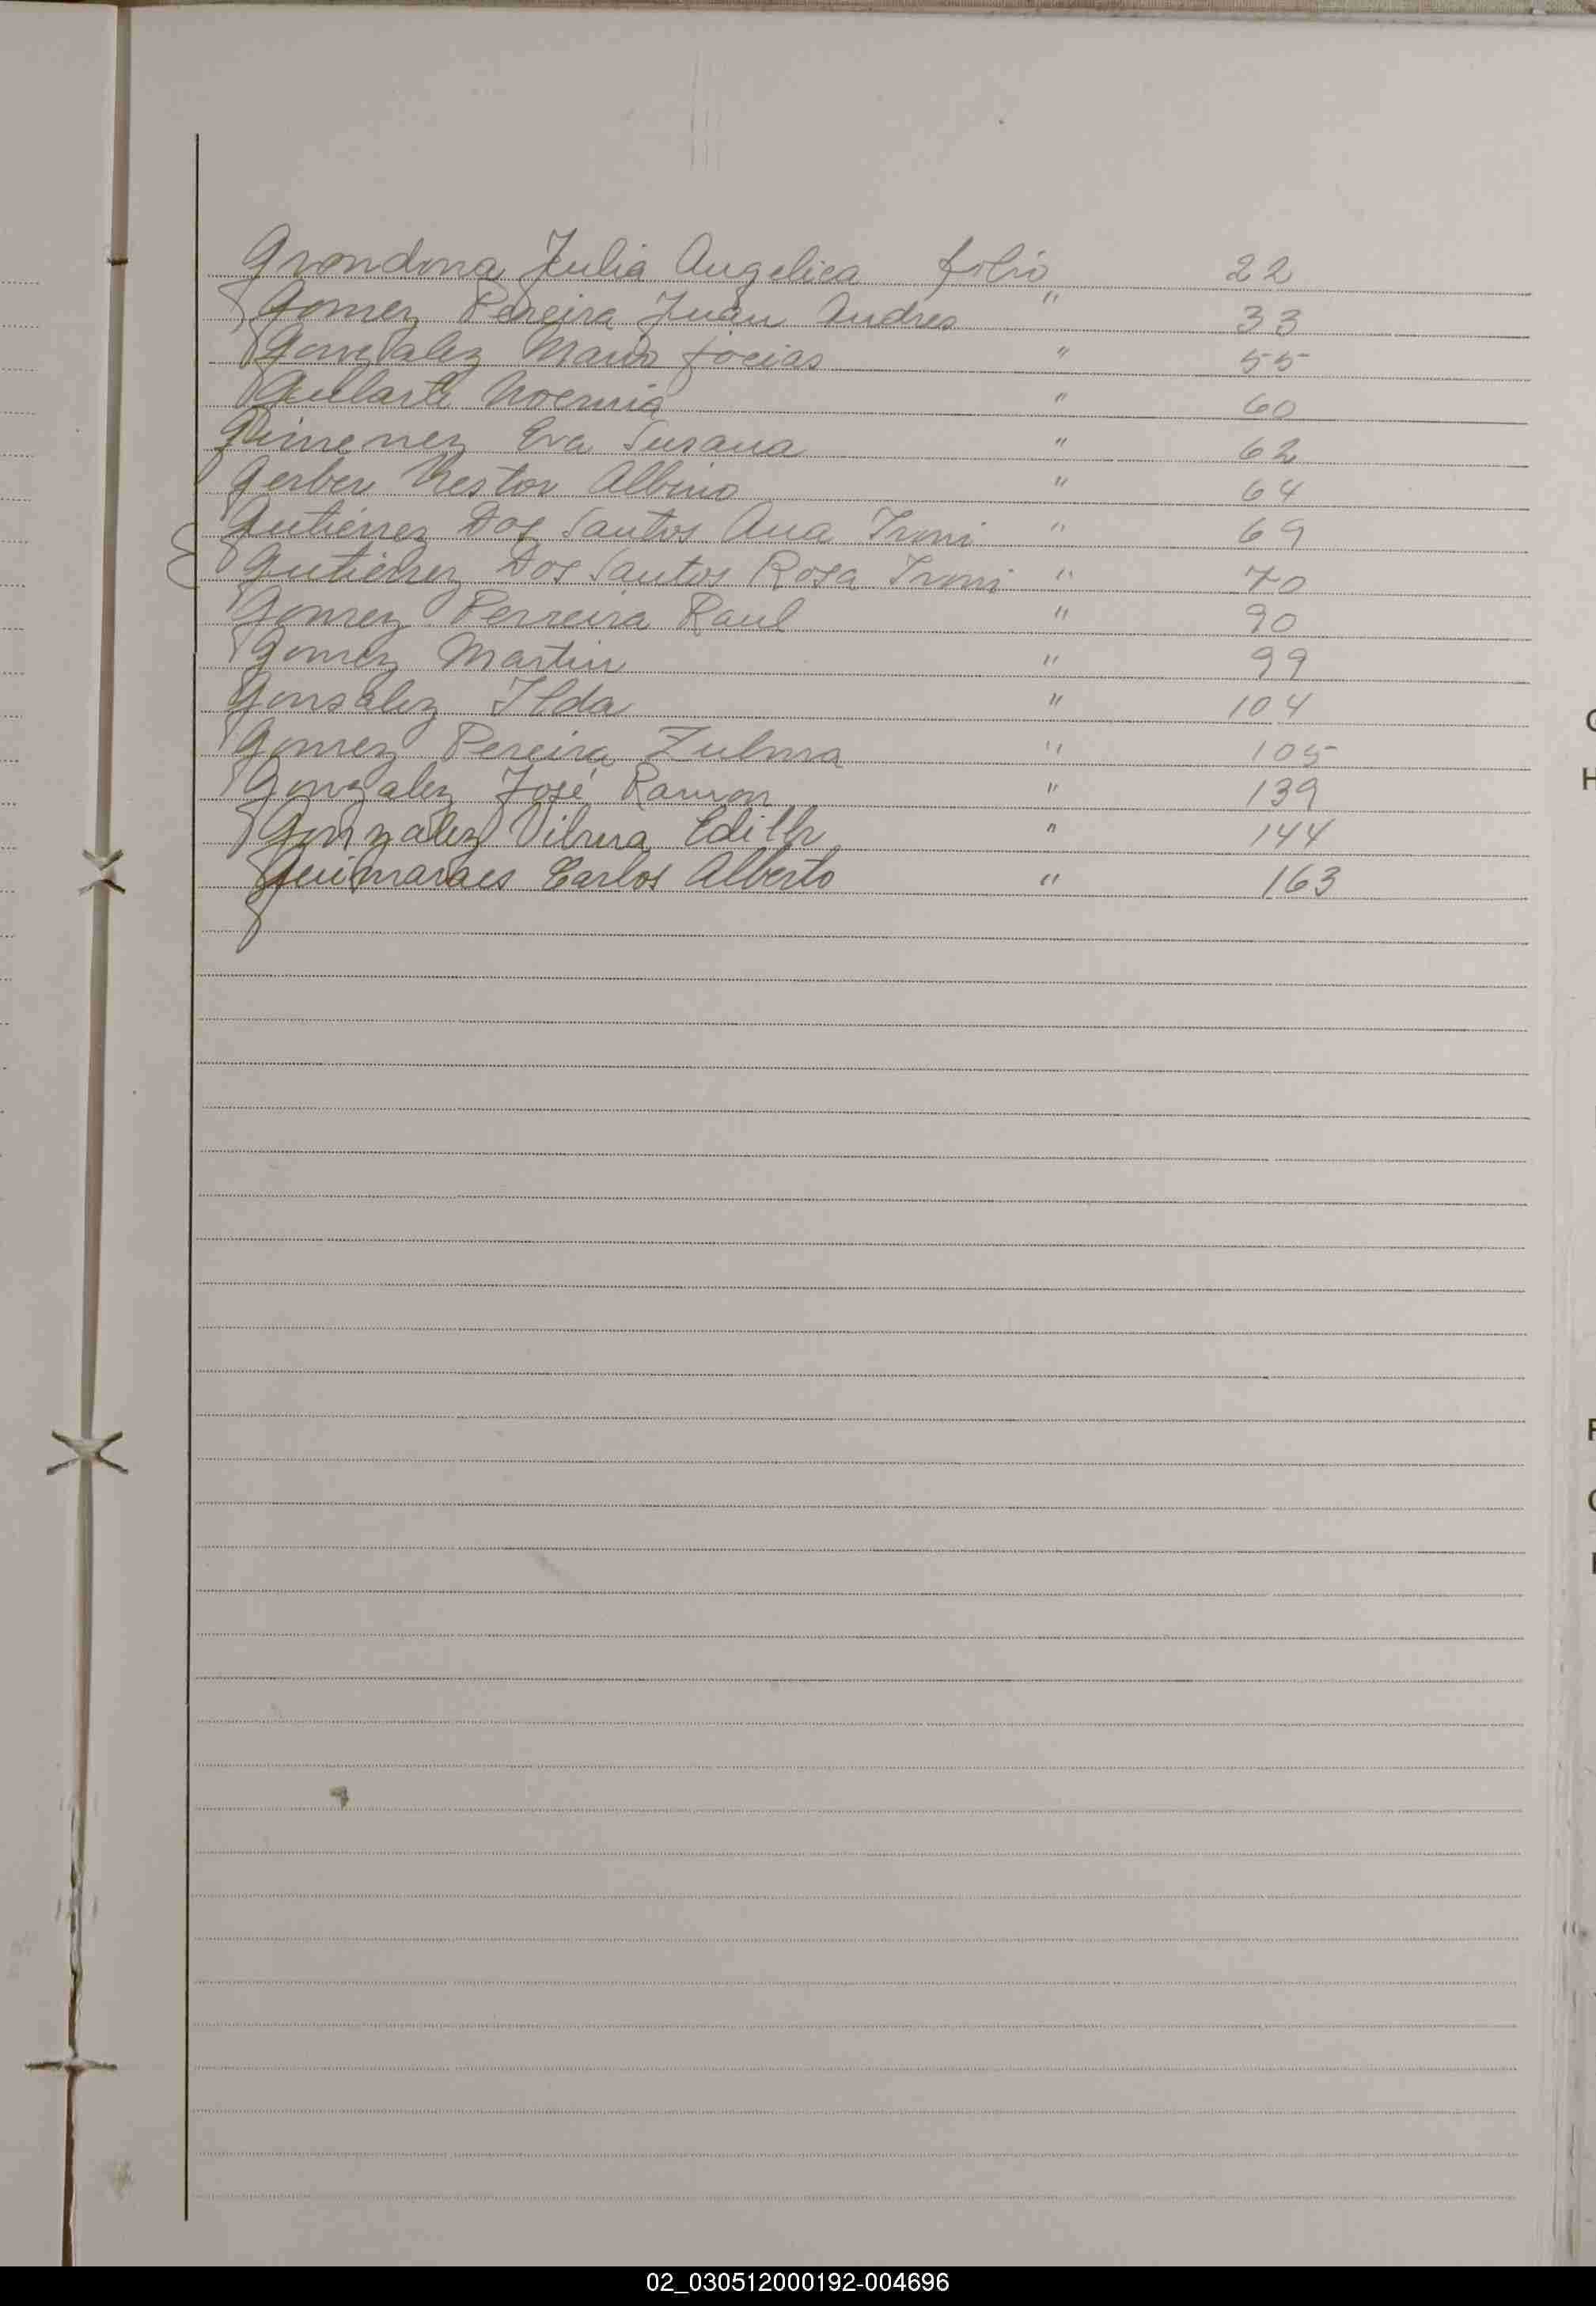 Grondona Julia Angelica folio 22
Gomez Pereira Juan Andres " 33
Gonzalez Mario " 55
Noemia " 60
Gimenez Eva Susana " 62
Gerber Nestor Albino " 64
Gutiérrez Dos Santos Ana Ironi " 69
Gutiérrez Dos Santos Rosa Ironi " 70
Gomez Perreira Raul " 90
Gomez Martin " 99
Gonsalez Ilda " 104
Gomez Pereira Zulma " 105
Gonzalez José Ramon " 139
Gonzalez Vilma Edith " 144
Guimaraes Carlos Alberto " 163
02_030512000192-004696